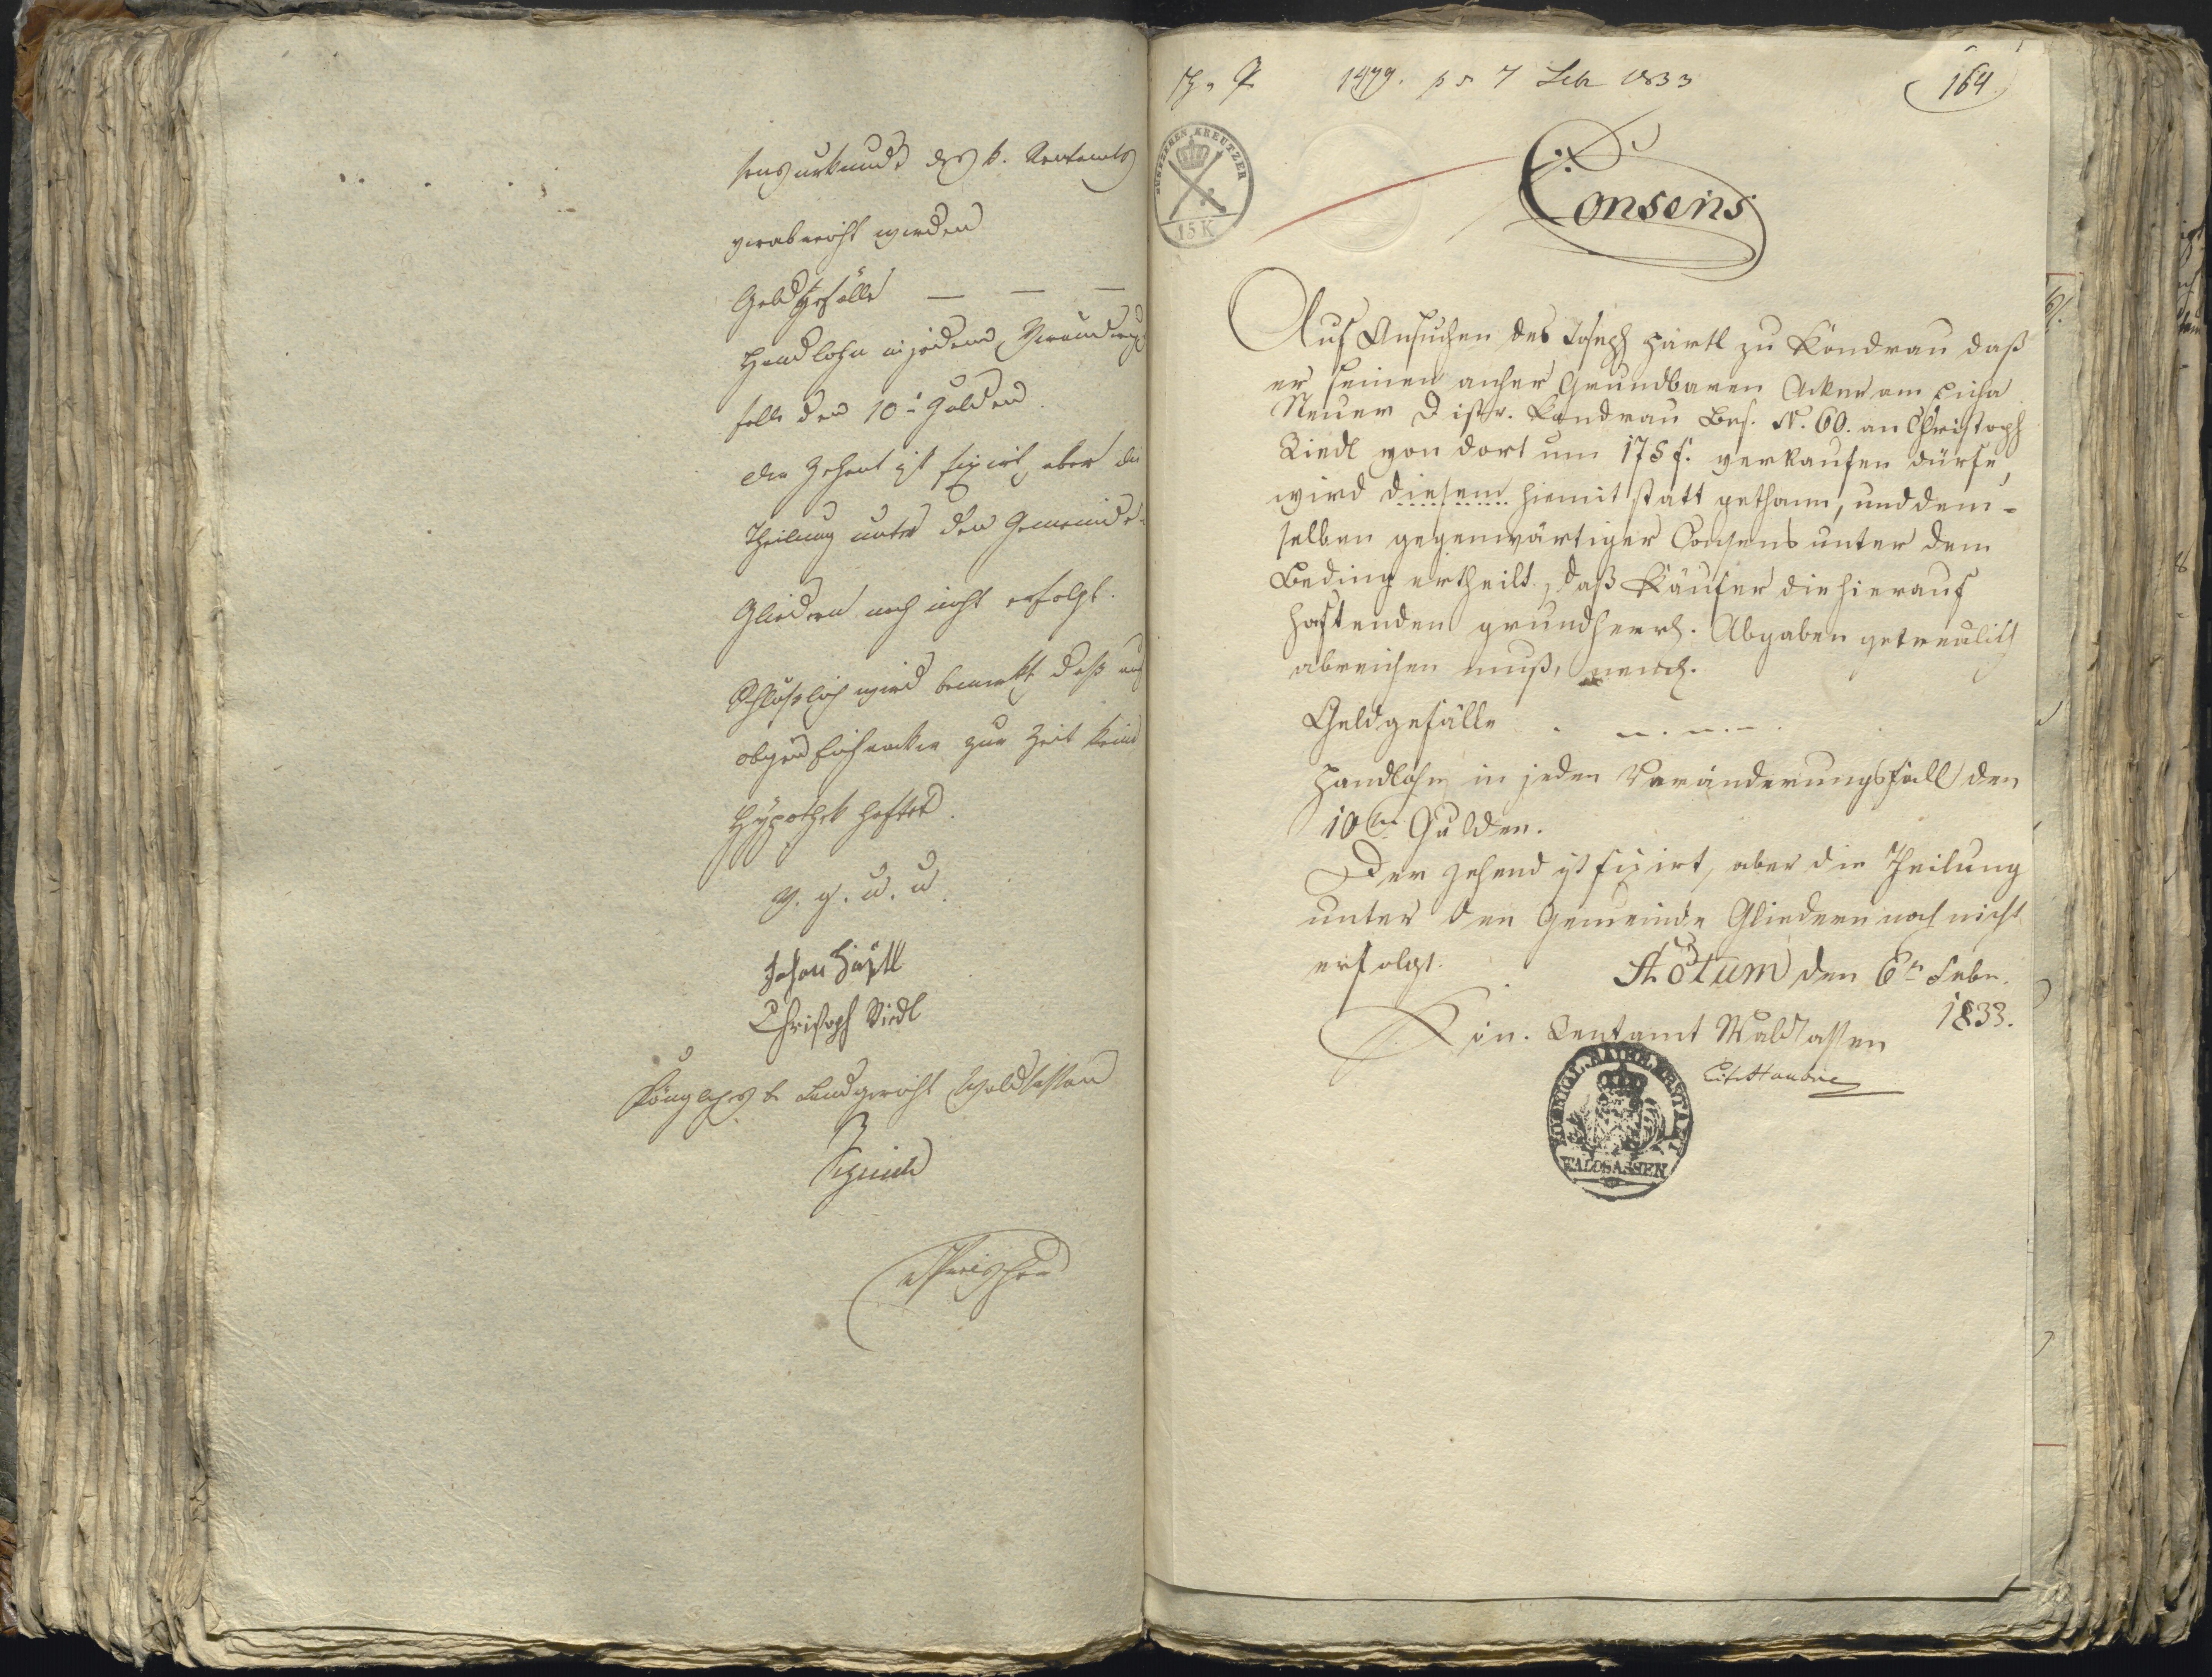 sensurkunde des k. Rentamts
verabreicht werden
Geldgefälle — — —
Handlohn in jedem Veränderungs
falle den 10t Gulden.
der Zehent ist fixirt, aber die
Theilung unter den Gemeinde-
Gliedern noch nicht erfolgt.
Schlüßlich wird bemerkt daß auf
obigen zur Zeit keine
Hypothek haftet.
V. g. u. u.
Johann Härtl
Christoph Riedl
Königliches b. Landgericht Waldsassen
1479. ps 7 Feb 1833
164
KREUTZER
15 K
Consens
Auf Ansuchen des Joseph Härtl zu Kondrau daß
er seinen anher Grundbaren Acker am
Steuer Distr. Kondrau Bes. N. 60. an Christoph
Riedl von dort um 175 f. verkaufen dürfe,
wird diesem hiemit statt gethann, und dem-
selben gegenwärtiger Consens unter dem
Beding ertheilt, daß Käufer die hierauf
haftenden grundherrl. Abgaben getreulich
abreichen muß,
Geldgefälle
Handlohn in jeden Veränderungsfall den
10ten Gulden.
Der Zehend ist fixirt, aber die Theilung
unter den Gemeinde Gliedern noch nicht
erfolgt.
Actum den 6t Febr.
1833.
Kön. Rentamt Waldsassen
KOENIGL. BAIER. RENTAMT
WALDSASSEN